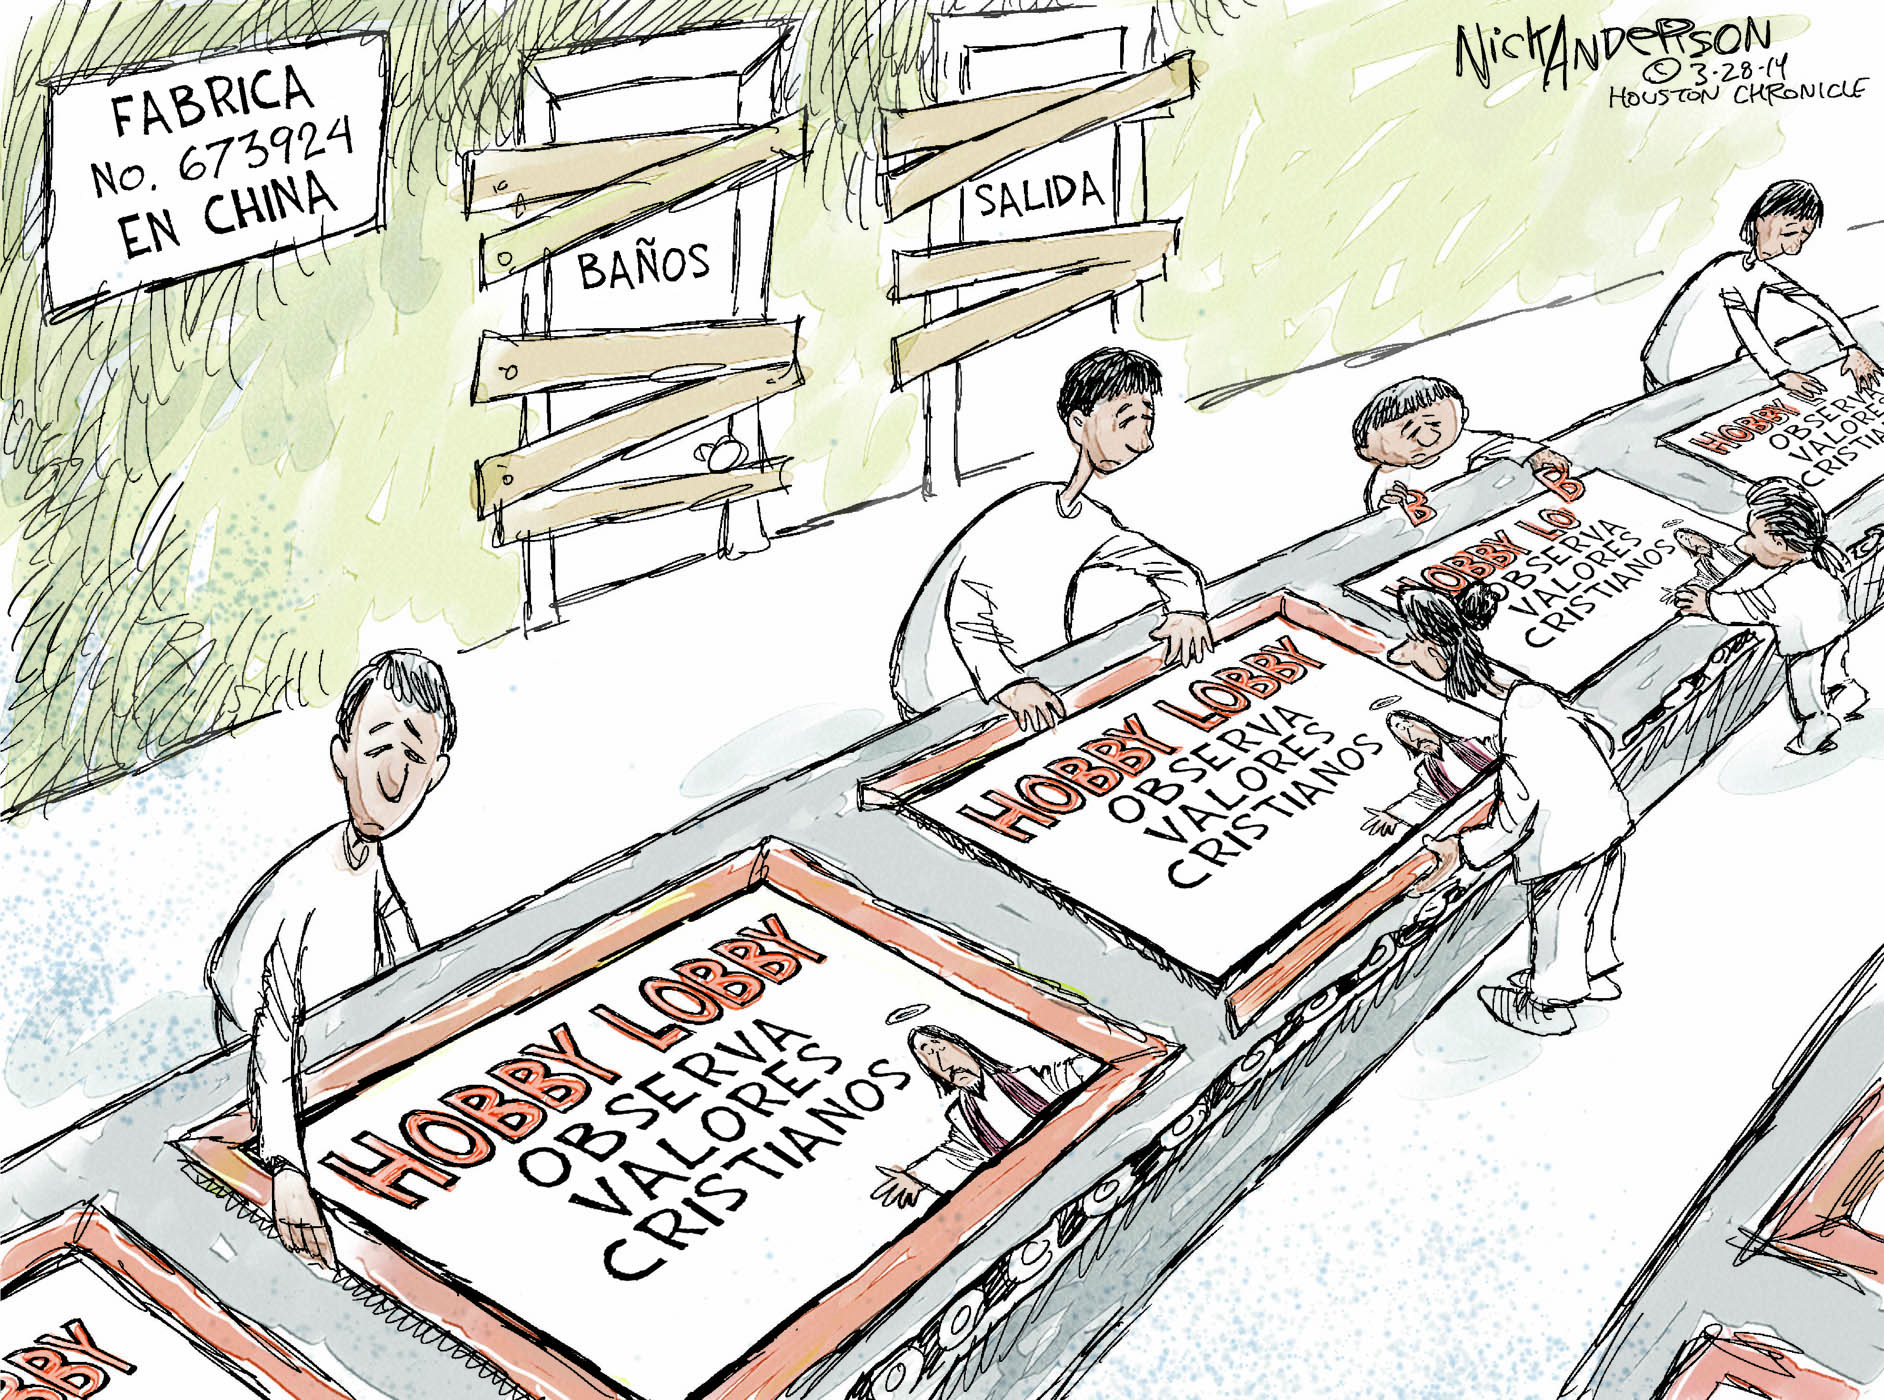 FABRICA
No. 673924
EN CHINA
BAÑOS
SALIDA
NICK ANDERSON
© 3-28-14
HOUSTON CHRONICLE
HOBBY
OBSERVA
VALORES
CRISTIA
HOBBY LO B
B
OBSERVA
VALORES
CRISTIANOS
HOBBY LOBBY
OBSERVA
VALORES
CRISTIANOS
HOBBY LOBBY
OBSERVA
VALORES
CRISTIANOS
BBY